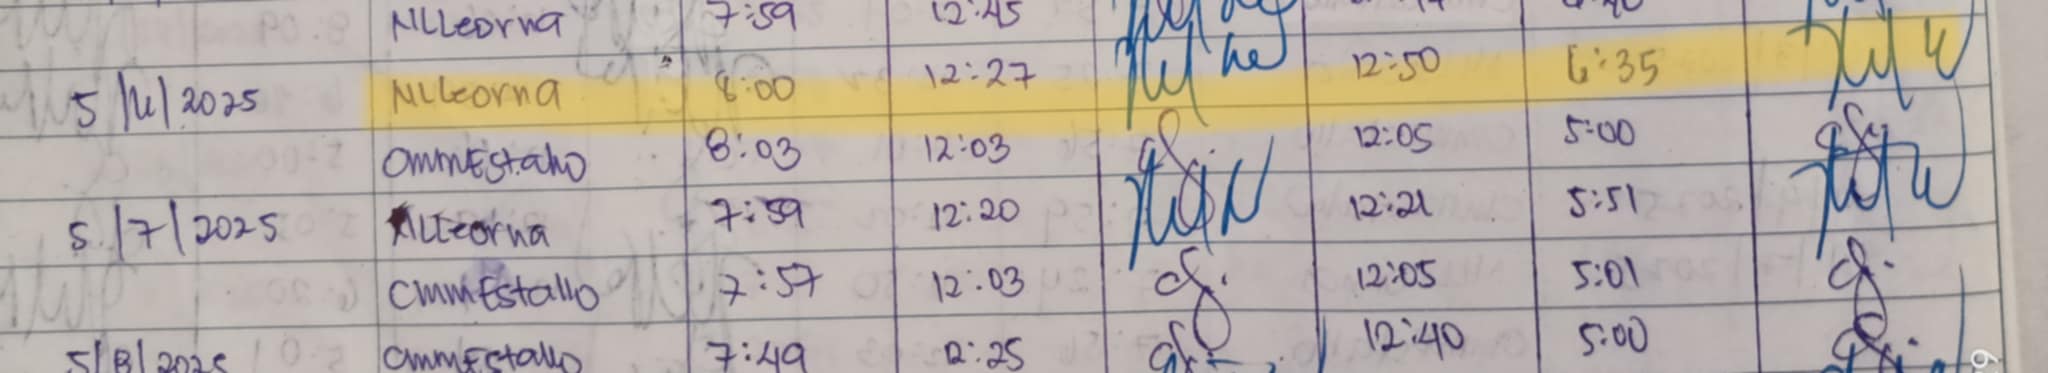 NLLeorna 7:59 12:45
5/6/2025 NLLeorna 8:00 12:27 12:50 6:35
CMMEstallo 8:03 12:03 12:05 5:00
5/7/2025 NLLeorna 7:59 12:20 12:21 5:51
CMMEstallo 7:57 12:03 12:05 5:01
5/8/2025 CMMEstallo 7:49 12:25 12:40 5:00